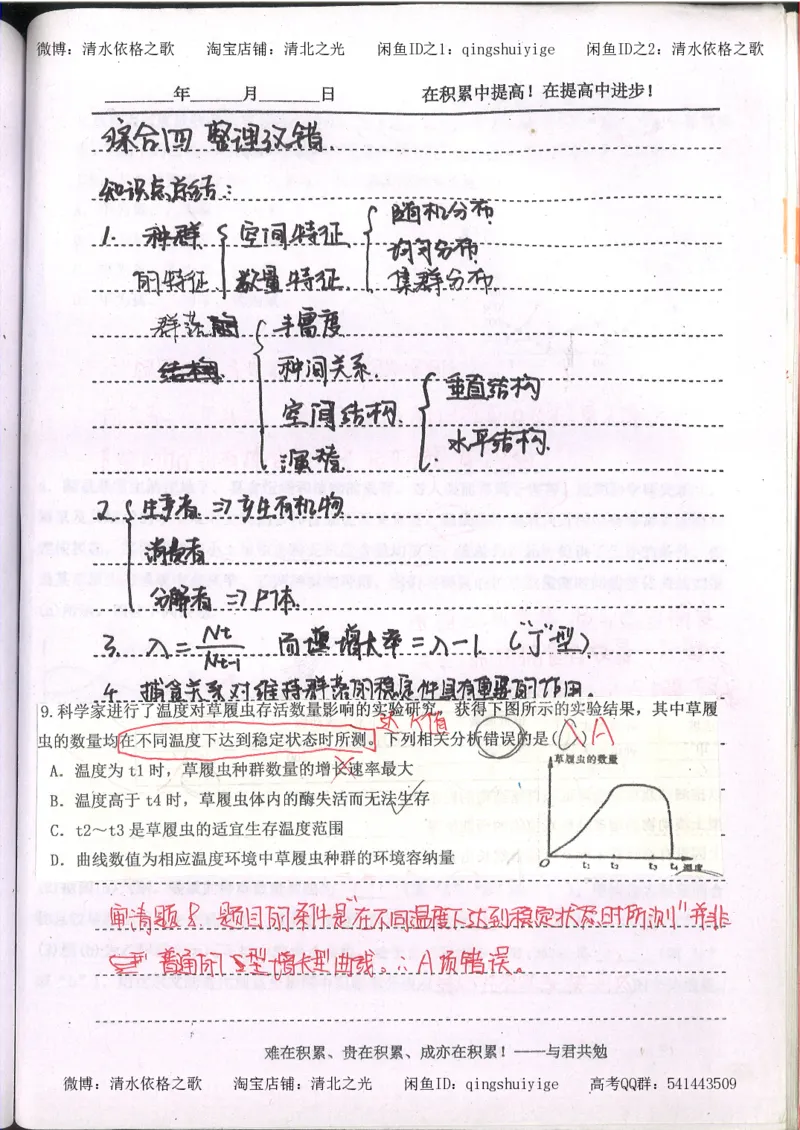 微博：清水依格之歌 淘宝店铺：清北之光 闲鱼ID之1：qingshuiyige 闲鱼ID之2：清水依格之歌
年 月 日 在积累中提高！在提高中进步！
综合四 整理议错.
知识点总结：
1. 种群的特征 空间特征 随机分布 均匀分布 集群分布.
数量特征.
群落 丰富度
种间关系
空间结构. 垂直结构 水平结构.
演替.
2. 生产者 ⇒ 产生有机物
消费者
分解者 ⇒ 尸体.
3. λ = Nt/Nt-1 而 增长率 = λ-1. (“J”型)
4. 捕食关系对维持群落的稳定性具有重要的作用。
9.科学家进行了温度对草履虫存活数量影响的实验研究，获得下图所示的实验结果，其中草履
虫的数量均在不同温度下达到稳定状态时所测。下列相关分析错误的是( ) A
A．温度为 t1 时，草履虫种群数量的增长速率最大
B．温度高于 t4 时，草履虫体内的酶失活而无法生存
C．t2～t3 是草履虫的适宜生存温度范围
D．曲线数值为相应温度环境中草履虫种群的环境容纳量
草履虫的数量
O t1 t2 t3 t4 温度
审清题：题目的条件是“在不同温度下达到稳定状态时所测”并非
普通的 型增长型曲线。∴A项错误。
难在积累、贵在积累、成亦在积累！——与君共勉
微博：清水依格之歌 淘宝店铺：清北之光 闲鱼ID：qingshuiyige 高考QQ群：541443509